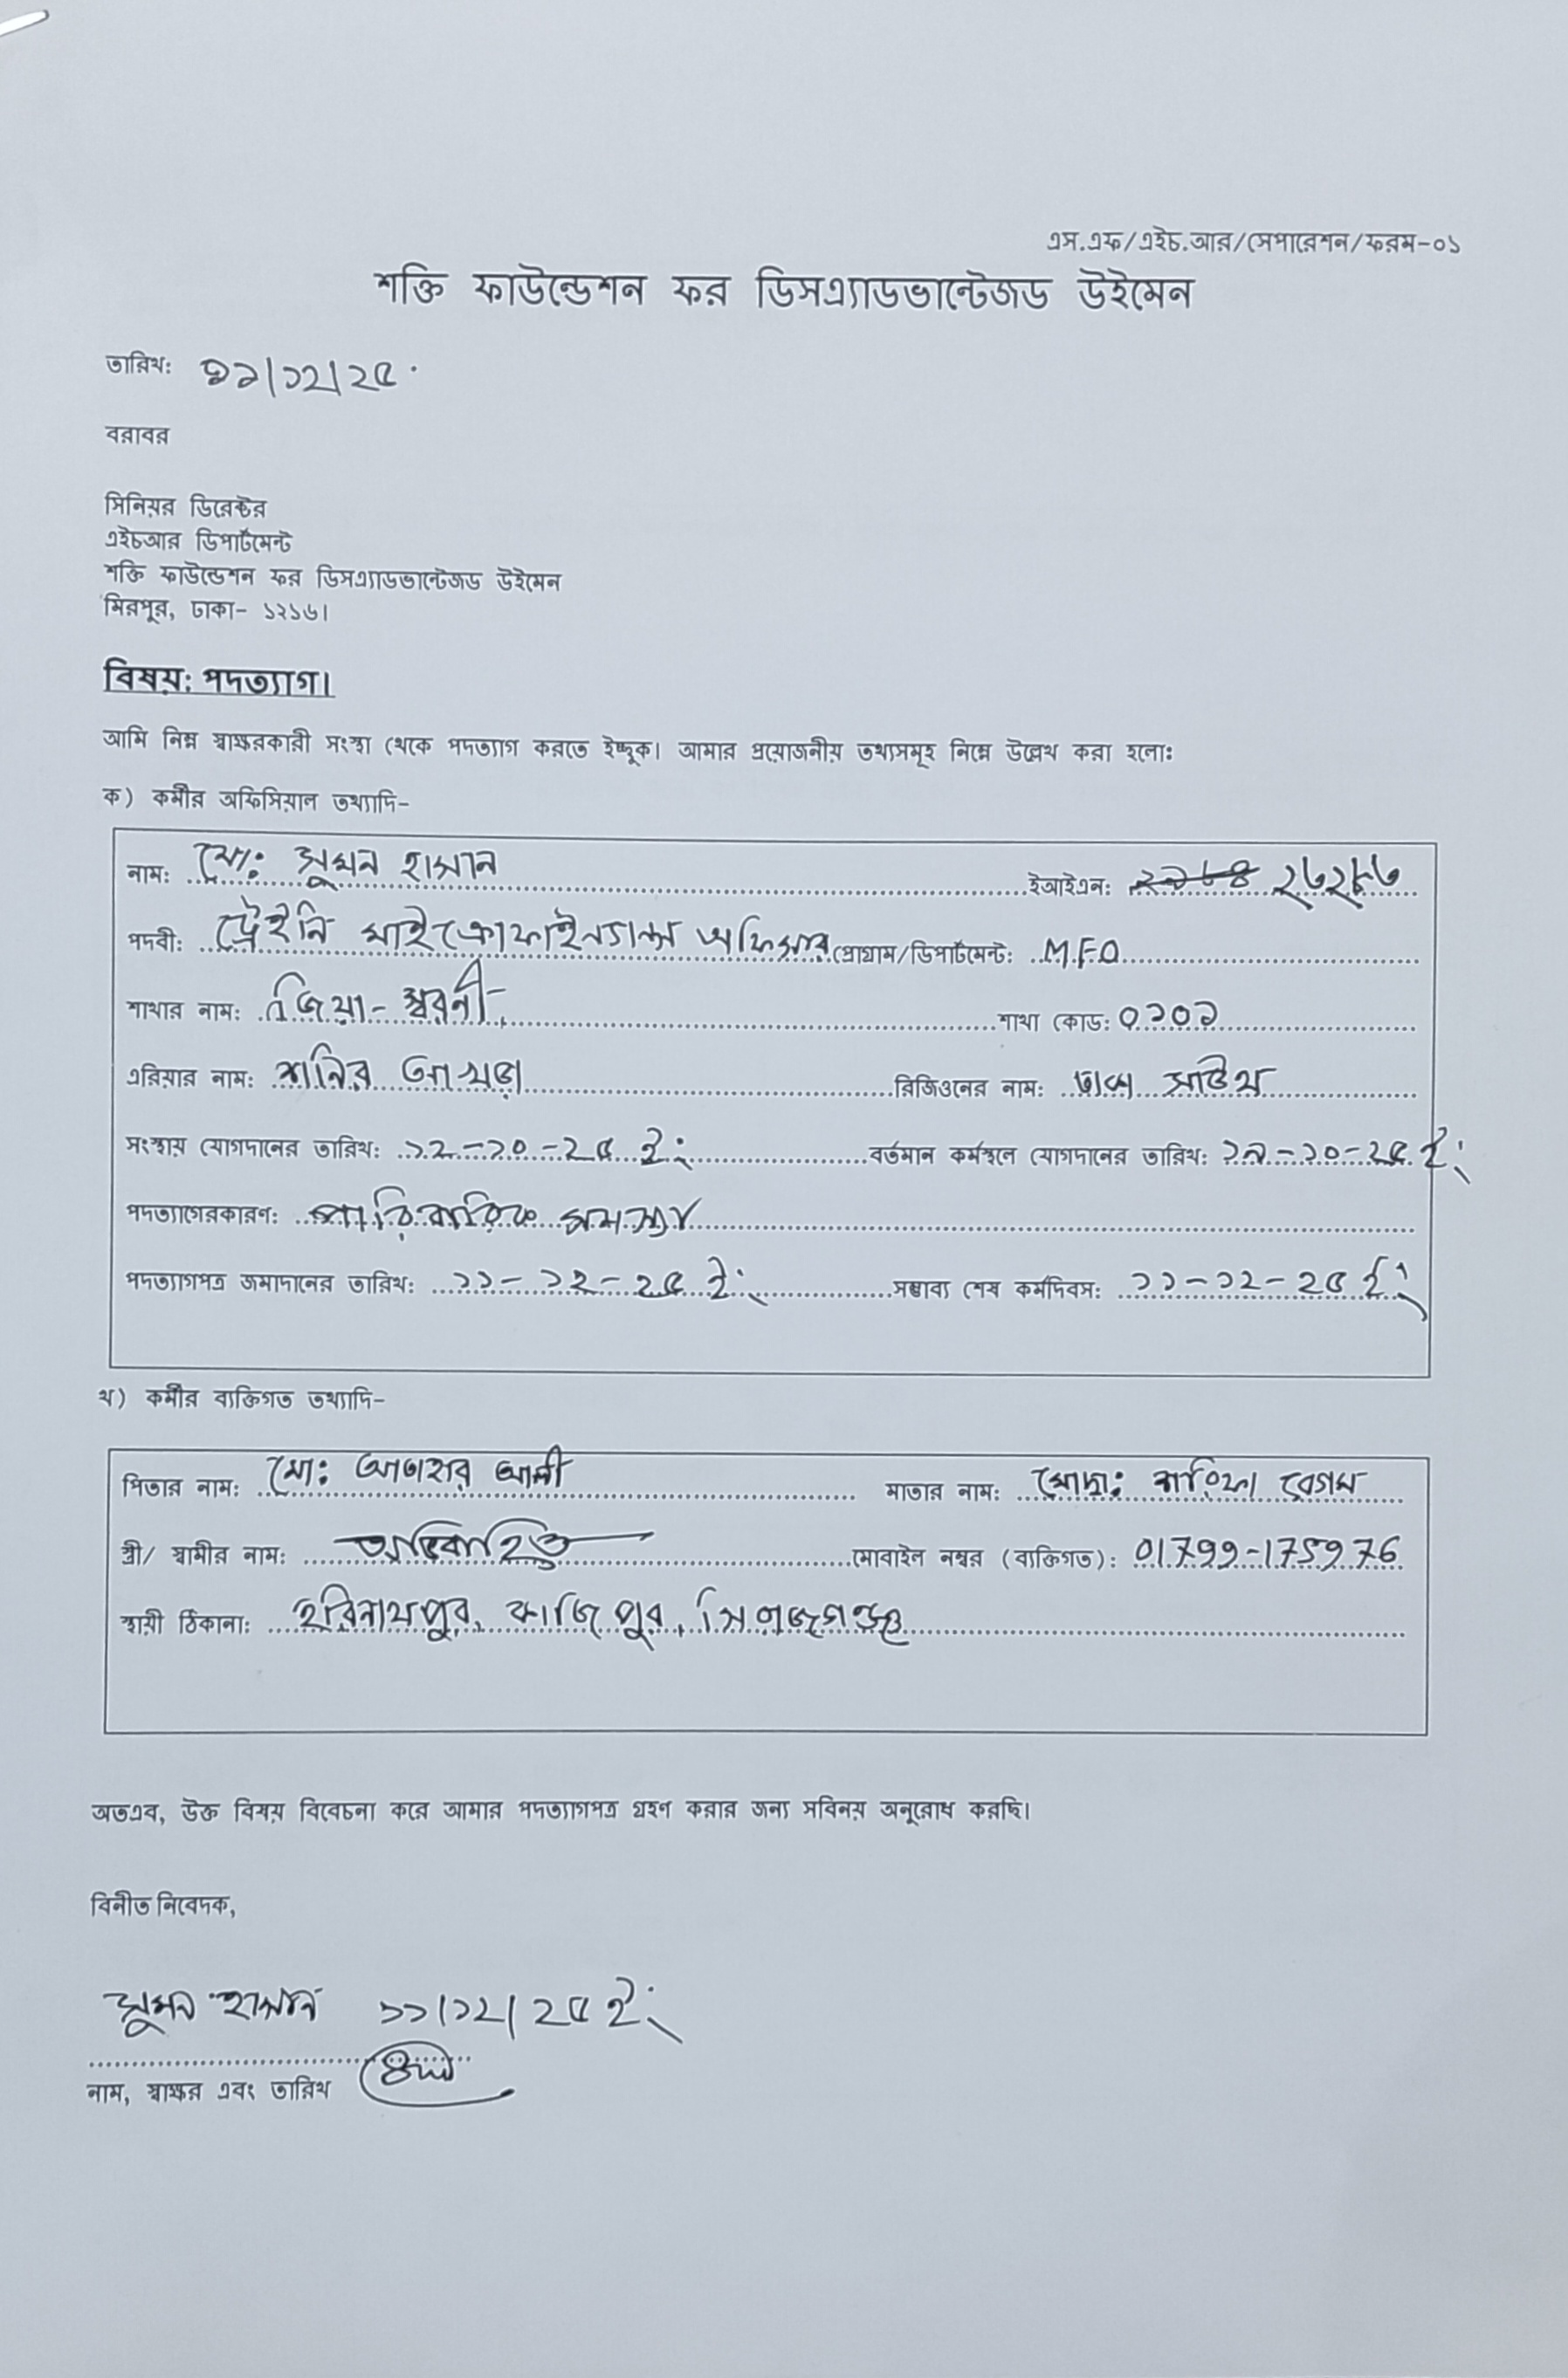 এস.এফ/এইচ.আর/সেপারেশন/ফরম-০১
শক্তি ফাউন্ডেশন ফর ডিসএ্যাডভান্টেজড উইমেন
তারিখ: ১১/১২/২৫
বরাবর
সিনিয়র ডিরেক্টর
এইচআর ডিপার্টমেন্ট
শক্তি ফাউন্ডেশন ফর ডিসএ্যাডভান্টেজড উইমেন
মিরপুর, ঢাকা- ১২১৬।
বিষয়: পদত্যাগ।
আমি নিম্ন স্বাক্ষরকারী সংস্থা থেকে পদত্যাগ করতে ইচ্ছুক। আমার প্রয়োজনীয় তথ্যসমূহ নিম্নে উল্লেখ করা হলো:
ক) কর্মীর অফিসিয়াল তথ্যাদি-
নাম: মো: সুমন হাসান ইআইএন:
পদবী: ট্রেইনি মাইক্রোফাইন্যান্স অফিসার প্রোগ্রাম/ডিপার্টমেন্ট: M.F.O
শাখার নাম: জিয়া-স্বরনী শাখা কোড: ০১০১
এরিয়ার নাম: শনির আখড়া রিজিওনের নাম: ঢাকা সাউথ
সংস্থায় যোগদানের তারিখ: ১২-১০-২৫ ইং বর্তমান কর্মস্থলে যোগদানের তারিখ: ১২-১০-২৫ ইং
পদত্যাগেরকারণ: পারিবারিক সমস্যা
পদত্যাগপত্র জমাদানের তারিখ: ১১-১২-২৫ ইং সম্ভাব্য শেষ কর্মদিবস: ১১-১২-২৫ ইং
খ) কর্মীর ব্যক্তিগত তথ্যাদি-
পিতার নাম: মো: আজহার আলী মাতার নাম: মোছা: বেগম
স্ত্রী/ স্বামীর নাম: অবিবাহিত মোবাইল নম্বর (ব্যক্তিগত): 01799-175976
স্থায়ী ঠিকানা: হরিনাথপুর, কাজিপুর, সিরাজগঞ্জ
অতএব, উক্ত বিষয় বিবেচনা করে আমার পদত্যাগপত্র গ্রহণ করার জন্য সবিনয় অনুরোধ করছি।
বিনীত নিবেদক,
সুমন হাসান ১১/১২/২৫ ইং
নাম, স্বাক্ষর এবং তারিখ